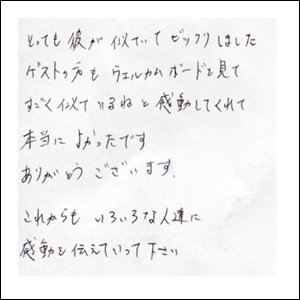 とっても彼が似ていてビックリしました
ゲストの方もウェルカムボードを見て
すごく似ているねと感動してくれて
本当によかったです
ありがとうございます。
これからもいろいろな人達に
感動を伝えていって下さい